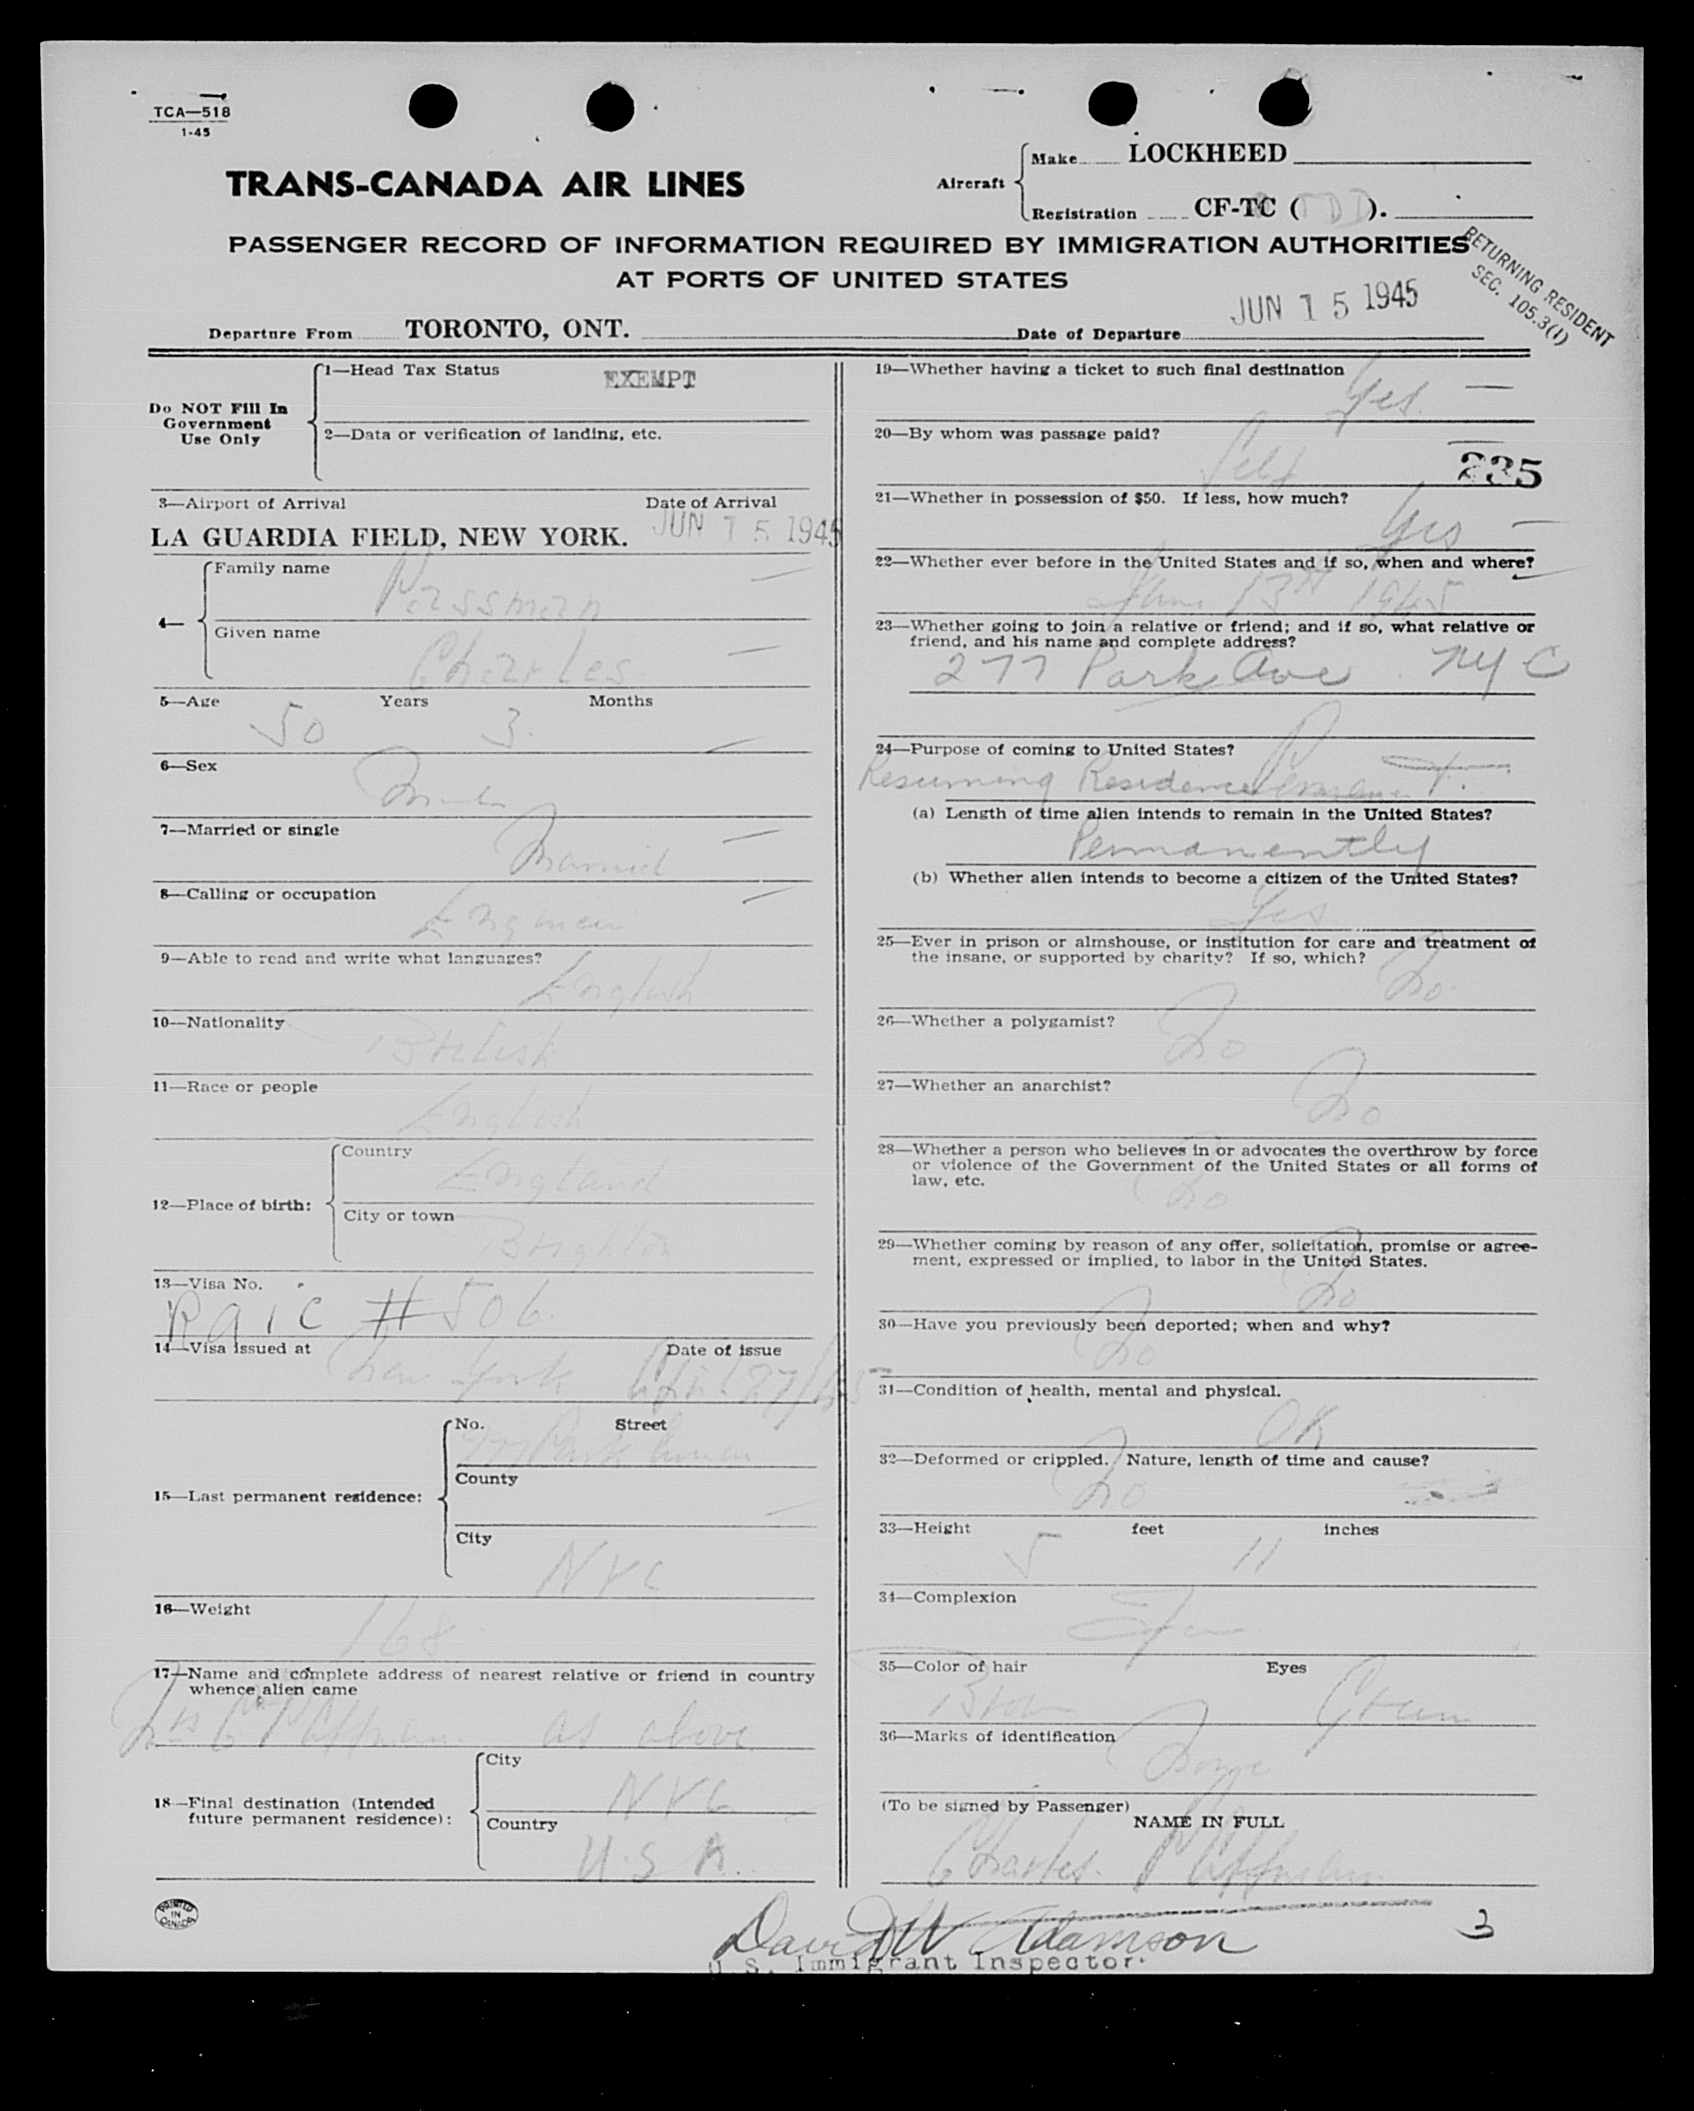 TCA—518
1-45
TRANS-CANADA AIR LINES
Aircraft
Make LOCKHEED
Registration CF-TC ( TDD ).
PASSENGER RECORD OF INFORMATION REQUIRED BY IMMIGRATION AUTHORITIES
AT PORTS OF UNITED STATES
RETURNING RESIDENT
SEC. 105.3(1)
Departure From TORONTO, ONT. Date of Departure JUN 15 1945
Do NOT Fill In
Government
Use Only
1—Head Tax Status EXEMPT
2—Data or verification of landing, etc.
3—Airport of Arrival Date of Arrival
LA GUARDIA FIELD, NEW YORK. JUN 15 1945
4—
Family name
Passman
Given name
Charles
5—Age 50 Years 3 Months
6—Sex
Male
7—Married or single
Married
8—Calling or occupation
Engineer
9—Able to read and write what languages?
English
10—Nationality
British
11—Race or people
English
12—Place of birth:
Country
England
City or town
Brighton
13—Visa No.
#506
14—Visa issued at Date of issue
New York April 27/45
15—Last permanent residence:
No. Street
277 Park Avenue
County
City
NYC
16—Weight
168
17—Name and complete address of nearest relative or friend in country
whence alien came
Mrs C Passman as above
18—Final destination (Intended
future permanent residence):
City
NYC
Country
U.S.A.
19—Whether having a ticket to such final destination
Yes
20—By whom was passage paid?
Self
235
21—Whether in possession of $50. If less, how much?
Yes
22—Whether ever before in the United States and if so, when and where?
June 13th 1945
23—Whether going to join a relative or friend; and if so, what relative or
friend, and his name and complete address?
277 Park Ave NYC
24—Purpose of coming to United States?
Resuming Residence Permanent
(a) Length of time alien intends to remain in the United States?
Permanently
(b) Whether alien intends to become a citizen of the United States?
Yes
25—Ever in prison or almshouse, or institution for care and treatment of
the insane, or supported by charity? If so, which?
No
26—Whether a polygamist?
No
27—Whether an anarchist?
No
28—Whether a person who believes in or advocates the overthrow by force
or violence of the Government of the United States or all forms of
law, etc.
No
29—Whether coming by reason of any offer, solicitation, promise or agree-
ment, expressed or implied, to labor in the United States.
No
30—Have you previously been deported; when and why?
No
31—Condition of health, mental and physical.
OK
32—Deformed or crippled. Nature, length of time and cause?
No
33—Height 5 feet 11 inches
34—Complexion
35—Color of hair Eyes
Brown Green
36—Marks of identification
None
(To be signed by Passenger)
NAME IN FULL
Charles Passman
PRINTED
IN
CANADA
David W Adamson
U.S. Immigrant Inspector.
3